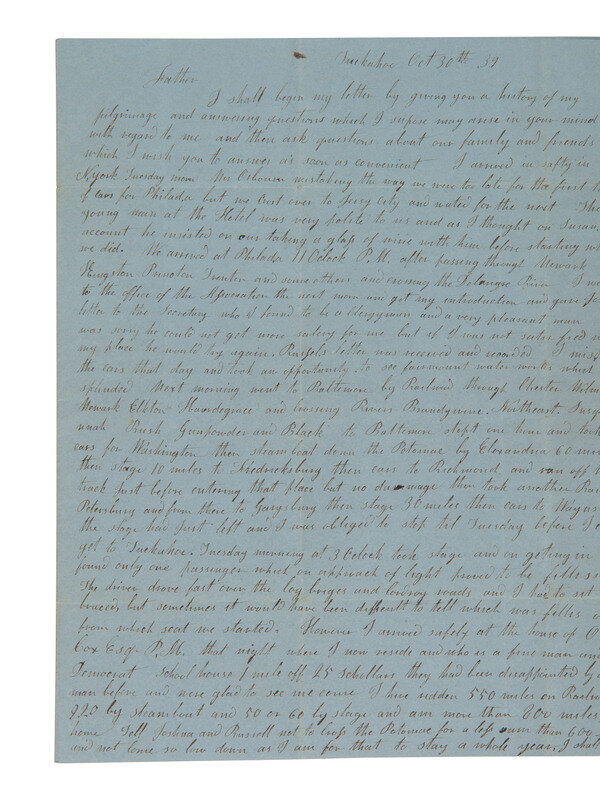 Tuckahoe Oct 30th 39
Father
I shall begin my letter by giving you a history of my
pilgrimage and answering questions which I supose may arise in your mind
with regard to me and then ask questions about our family and friends
which I wish you to answer as soon as convenient I arrived in safty in
N.york Tuesday morn Mr Osborn mistaking the way we were too late for the first
of cars for Philada but we crost over to Jersy City and waited for the next The
young man at the Hotel was very polite to us and as I thought on Susan
account he insisted on our taking a glass of wine with him before starting
we did. We arrived at Philada 11 Oclock P.M. after passing through Newark
Kingston Princton Trenton and some others and crossing the Delaware River I
to the office of the Association the next morn and got my introduction and gave
letter to the Secretary who I found to be a clergyman and a very pleasant man
was sorry he could not get more salery for me but if I was not satisfied
my place he would try again. Russels letter was received and recorded I
the cars that day and took an opportunity to see fairmount water works which
splended Next morning went to Baltimore by Railroad through Chester
Newark Elkton Havredegrace and crossing Rivers Brandywine. Northeast.
Bush Gunpowder and Black to Baltimore stopt one hour and took
cars for Washington then steamboat down the Potomac by Elexandria 60
then stage 10 miles to Fredricksburg then cars to Richmond, and ran off
track just before entering that place but no dammage then took another
Petersburg and from there to Garysburg then stage 30 miles then cars to
the stage had just left and I was obleged to stop til Tuesday before I
get to Tuckahoe. Tuesday morning at 3 Oclock took stage and on geting in
found only one passenger which on approach of light proved to be
The driver drove fast over the log briges and roads and I had to sit
braced, but sometimes it would have been difficult to tell which was
from which seat we started. However I arrived safely at the house of
Cox Esqr P.M. that night where I now reside and who is a fine man
Democrat School house 1 mile off 25 schollars they had been disappointed by
man before and were glad to see me come I have ridden 550 miles on
220 by steamboat and 50 or 60 by stage and am more than 800 miles
home Tell Joshua and Russell not to cross the Potomac for a less sum than 600
and not come so low down as I am for that to stay a whole year, I shall